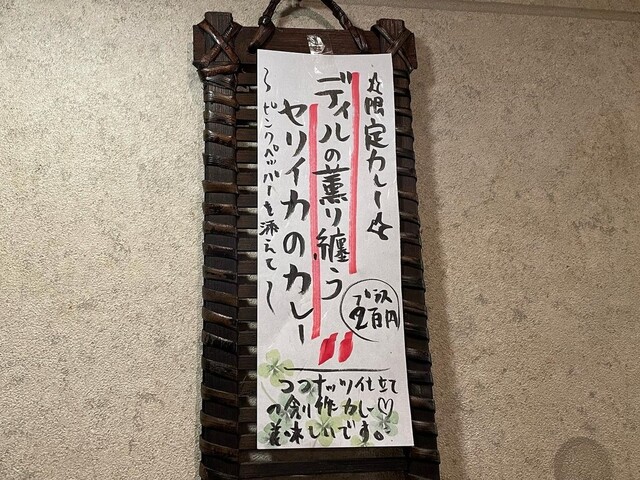 ☆限定カレー☆
ディルの薫り纏う
ヤリイカのカレー
〜ピンクペッパーを添えて〜
プラス
2百円
ココナッツ仕立て
の創作カレー♡
美味しいです。